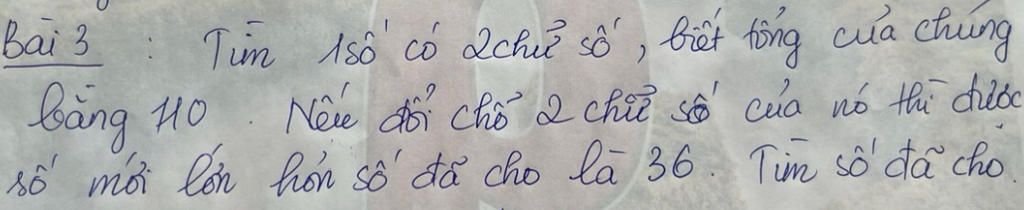 Bài 3 : Tìm 1 số có 2 chữ số, biết tổng của chúng
bằng 110. Nếu đổi chỗ 2 chữ số của nó thì được
số mới lớn hơn số đã cho là 36. Tìm số đã cho.